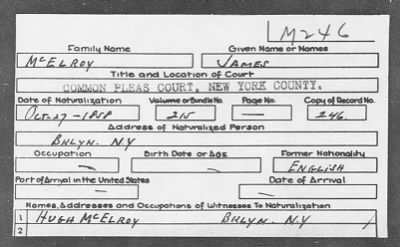 M246
Family Name Given Name or Names
McELROY JAMES
Title and Location of Court
COMMON PLEAS COURT, NEW YORK COUNTY.
Date of Naturalization Volume or Bundle No. Page No. Copy of Record No.
OCT-27-1858 215 — 246
Address of Naturalized Person
BKLYN. N.Y
Occupation Birth Date or Age Former Nationality
— — ENGLISH
Port of Arrival in the United States Date of Arrival
— —
Names, Addresses and Occupations of Witnesses To Naturalization
1 HUGH McELROY BKLYN. N.Y
2